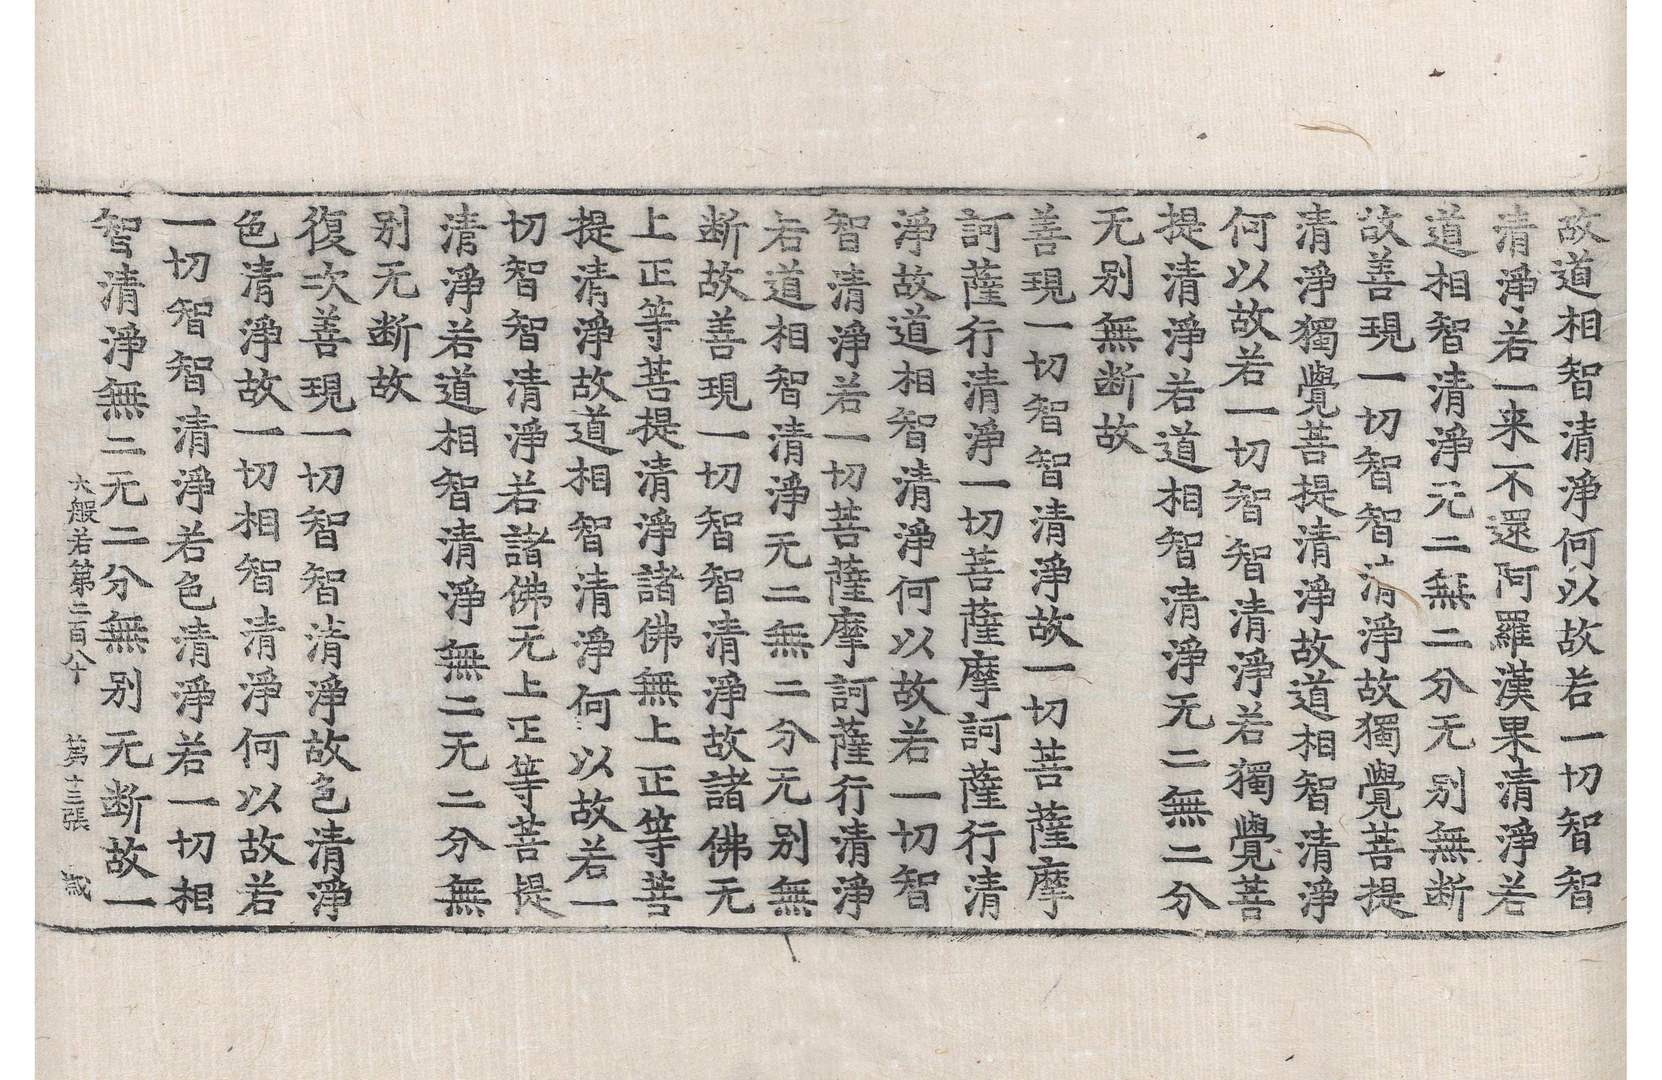 故道相智清淨何以故若一切智智
清淨若一来不還阿羅漢果清淨若
道相智清淨无二無二分无别無断
故善現一切智智清淨故獨覺菩提
清淨獨覺菩提清淨故道相智清淨
何以故若一切智智清淨若獨覺菩
提清淨若道相智清淨无二無二分
无别無断故
善現一切智智清淨故一切菩薩摩
訶薩行清淨一切菩薩摩訶薩行清
淨故道相智清淨何以故若一切智
智清淨若一切菩薩摩訶薩行清淨
若道相智清淨无二無二分无别無
断故善現一切智智清淨故諸佛无
上正等菩提清淨諸佛無上正等菩
提清淨故道相智清淨何以故若一
切智智清淨若諸佛无上正等菩提
清淨若道相智清淨無二无二分無
别无断故
復次善現一切智智清淨故色清淨
色清淨故一切相智清淨何以故若
一切智智清淨若色清淨若一切相
智清淨無二无二分無别无断故一
大般若第二百八十 第十三張